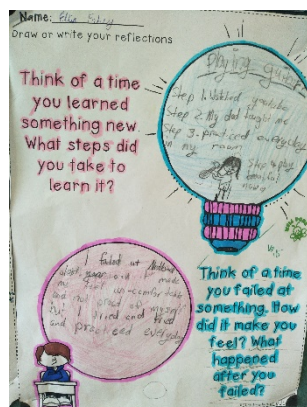 Name:
Draw or write your reflections
Think of a time
you learned
something new.
What steps did
you take to
learn it?
Playing guitar
Step 1. Watched youtube
Step 2. My dad taught me
Step 3. practiced everyday
in my room
Step 4. play
beautiful
I failed at
me feel un-comfortable
and not proud of myself
but I tried and tried
and practiced everyday
Think of a time
you failed at
something. How
did it make you
feel? What
happened
after you
failed?